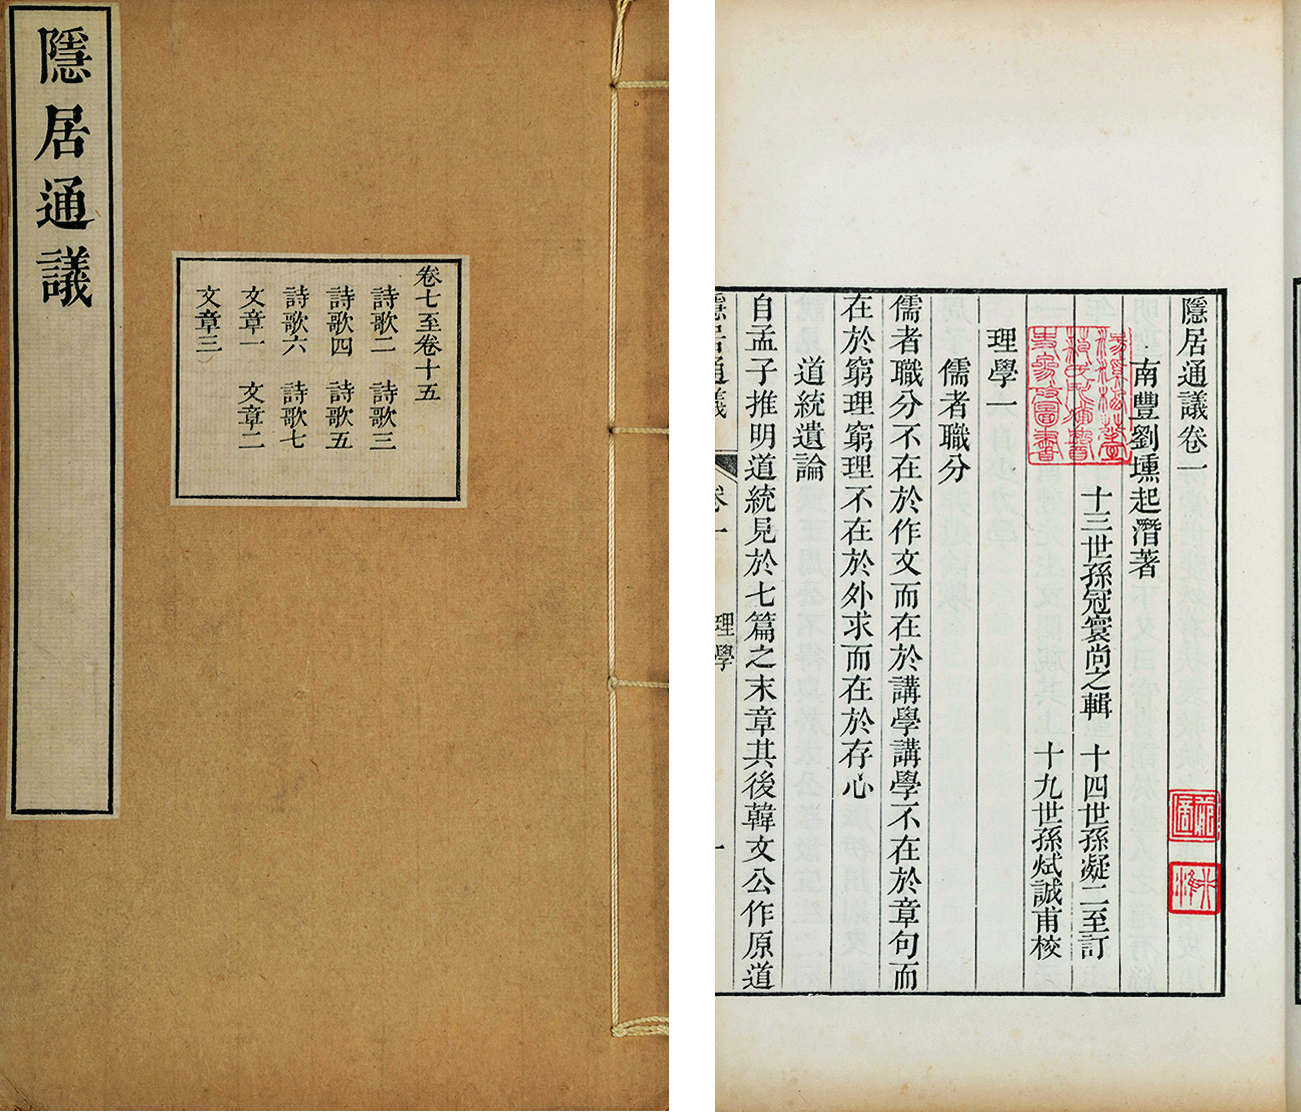 隱居通議
卷七至卷十五
詩歌二　詩歌三
詩歌四　詩歌五
詩歌六　詩歌七
文章一　文章二
文章三
隱居通議卷一
南豐劉壎起潛著
十三世孫冠寰尚之輯　十四世孫凝二至訂
十九世孫斌誠甫校
理學一
儒者職分
儒者職分不在於作文而在於講學講學不在於章句而
在於窮理窮理不在於外求而在於存心
道統遺論
自孟子推明道統見於七篇之末章其後韓文公作原道
隱居通議　卷一　理學　一